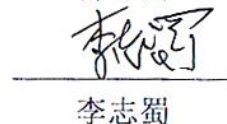 李志蜀
李志蜀